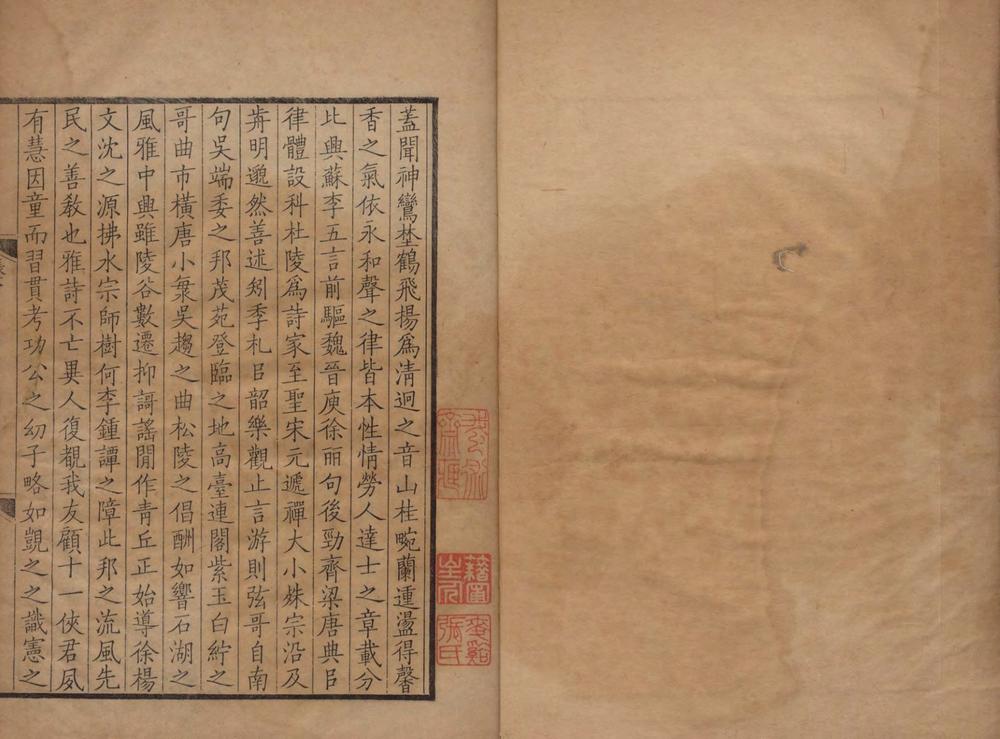 蓋聞神鸞埜鶴飛楊爲淸迥之音山桂畹蘭連盪得馨
香之氣依永和聲之律皆本性情勞人達士之章載分
比興蘇李五言前驅魏晉庾徐丽句後勁齊梁唐典㠯
律體設科杜陵爲詩家至聖宋元遞禪大小姝宗沿及
歬明邈然善述矧季札㠯韶樂觀止言游則弦哥自南
句吳端委之邦茂苑登臨之地高臺連閣紫玉白紵之
哥曲市橫唐小兼吳趨之曲松陵之倡酬如響石湖之
風雅中興雖陵谷數遷抑謌謠閒作靑丘正始導徐楊
文沈之源拂水宗師樹何李鍾譚之障此邦之流風先
民之善敎也雅詩不亡異人復覩我友顧十一俠君夙
有慧因童而習貫考功公之幼子略如覬之之識憲之
張氏